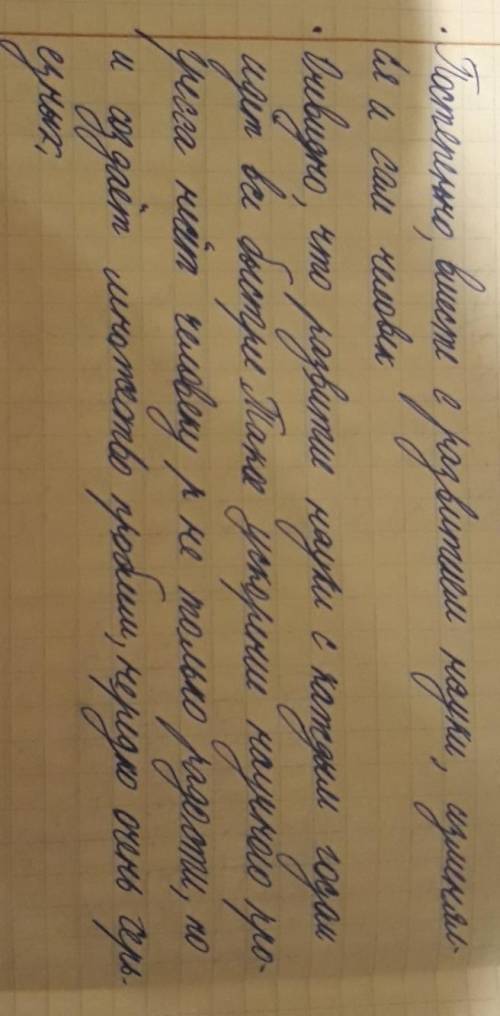 · Постепенно, вместе с развитием науки, изменял-
ся и сам человек
· Очевидно, что развитие науки с каждым годом
идёт всё быстрее. Такое ускорение научного про-
гресса несёт человеку р не только радости, но
и создаёт множество проблем, нередко очень серь-
езных;